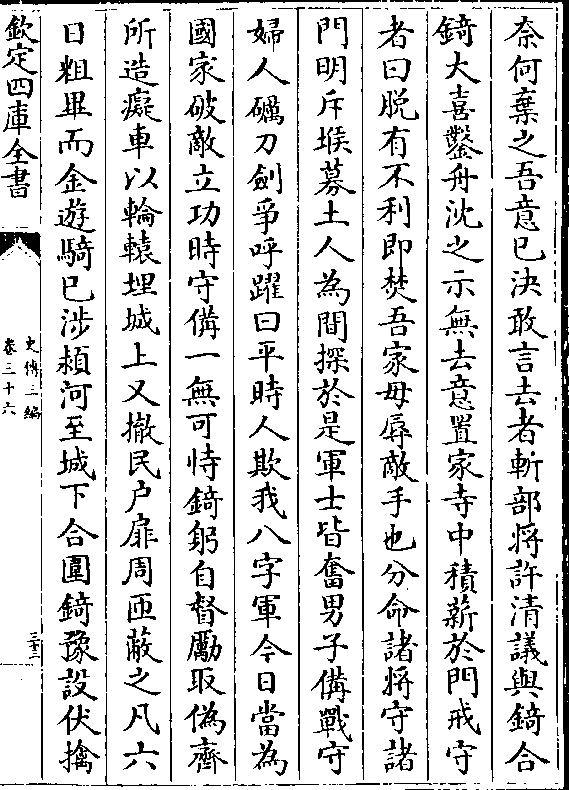 奈何棄之吾意已決敢言去者斬部將許清議與錡合
錡大喜鑿舟沈之示無去意置家寺中積薪於門戒守
者曰脱有不利即焚吾家毋辱敵手也分命諸將守諸
門明斥堠募土人為間探於是軍士皆奮男子備戰守
婦人礪刀劍爭呼躍曰平時人欺我八字軍今日當為
國家破敵立功時守備一無可恃錡躬自督厲取偽齊
所造癡車以輪轅埋城上又撤民户扉周匝蔽之凡六
日粗畢而金遊騎已涉潁河至城下合圍錡豫設伏擒
欽定四庫全書
史傳三編
卷三十六
三十二